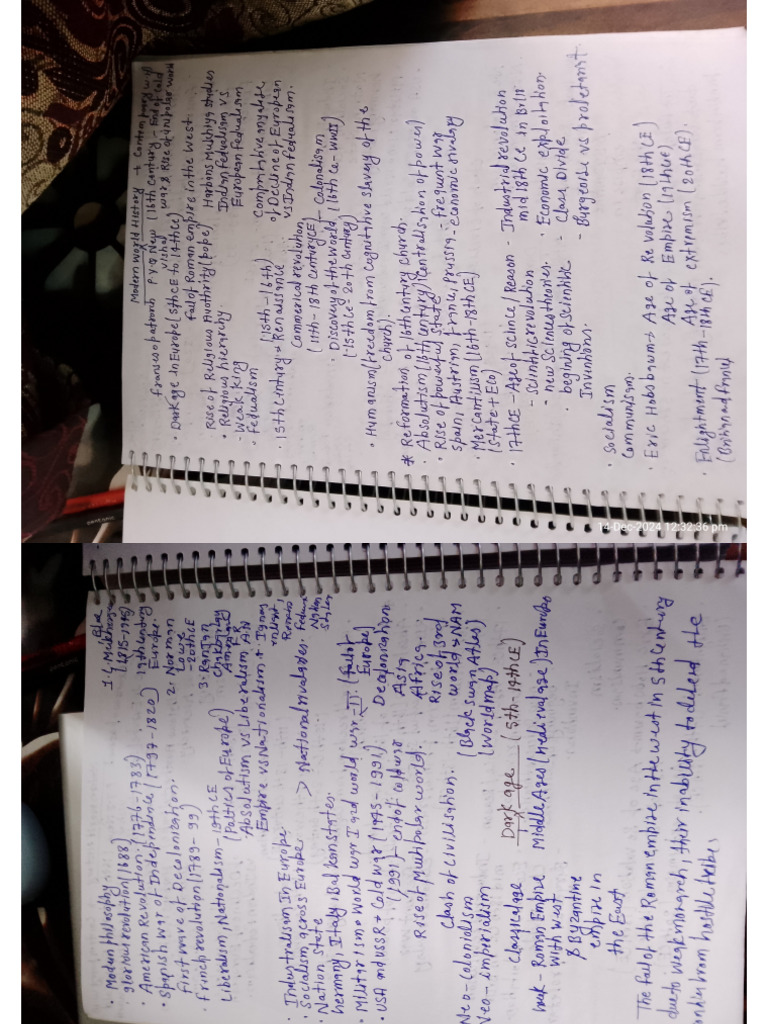 Modern World History → Contemporary world
transoaformb P Y Q New (16th Century - End of cold
vishal war & Rise of unipolar world
• Dark age in Europe (5thCE to 14thCE)
fall of Roman empire in the west
Rise of Religious Authority (pope)
• Religious hierarchy.
- Weak King
• Fedualism
Harbans Mukhiya studies
Indian Fedualism vs.
European Fedualism
Comparitive analysis
of Decline of European
vs Indian Fedualism.
• 15th Century → Renaissance
(15th-16th)
Commerical revolution
(11th-18th Century CE) - Colonalism
• Discovery of the World (16th Ce - WWII)
(15thCe 20th Century)
• Humanism (freedom from cognitive slavery of the
church).
* Reformation of 16th Century church.
• Absolutism (16th Century) (centralisation of power)
• Rise of powerful state frequent war
Spain, Austria, france, Prussia - economic rivalary
• Mercantilism (16th-18thCE)
(State + Eco)
• 17thCE - Age of science/Reason
- Scientific revolution
• new Science theories.
• begining of scientific
Inventions.
- Industrial revolution
mid 18th Ce in Britt
• Economic exploitation.
- Class Divide
- Burgeoise vs proletarist.
• Socialism
Communism.
• Eric Hobsbawm → Age of Revolution (18thCE)
Age of Empire (19thCE)
Age of extremism (20thCE)
• Enlightment (17th-18thCE).
14-Dec-2024 12:32:36 pm
• Modern philosophy.
glorious revolution (1688)
• American Revolution (1776-1783)
• Spanish war of Independence (1797-1820)
first wave of Decolonization.
• french revolution (1789-99)
Liberalism, Nationalism - 19th CE
(Politics of Europe)
Absolutism vs Liberalism
• Empire vs Nationalism
1. L. Mukherjee
(1815-1945)
19th century
Europe.
2. Norman
Lowe
- 20thCE
3. Ranjan
Chakrabarty
A.N
• Industralism In Europe
• Socialism across Europe
• Nation State
> National rivalaries.
Germany, Italy, Balkan states.
• Militarism → World War I and World War II (fall of
Europe)
• USA and USSR → Cold war (1945-1991)
(1991) - end of cold war
Rise of Multipolar world.
Decolonization
Asia
Africa.
Rise of 3rd
world → NAM
(Black swan Atlas)
(World map)
Clash of Civilisation.
Neo-Colonialism
Neo-Imperialism
Dark age (5th-14thCE)
Classical age
- Roman Empire Middle Ages (medieval age) In Europe
with West
& Byzantine
empire in
the East
The fall of the Roman empire in the west in 5th Century
due to weak monarch, their inability to defend the
from hostile tribes